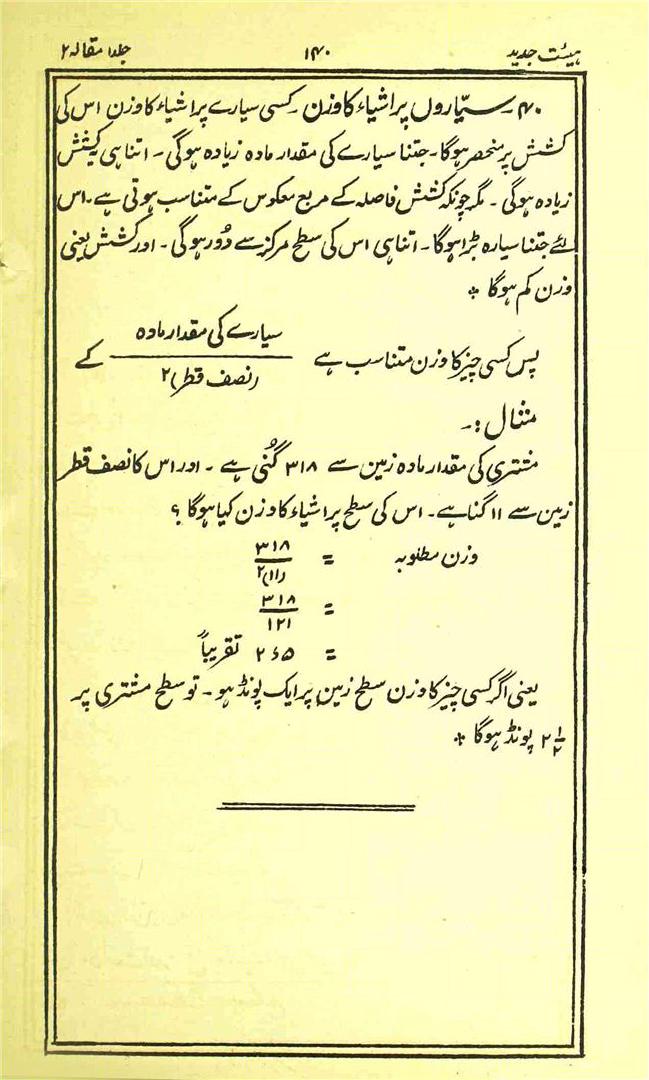 ہیئت جدید ۱۴۰ جلد ا مقالہ ۲
۴۰۔ سیّاروں پر اشیاء کا وزن۔ کسی سیارے پر اشیاء کا وزن اس کی
کشش پر منحصر ہوگا۔ جتنا سیارے کی مقدار مادہ زیادہ ہوگی۔ اتنا ہی یہ کشش
زیادہ ہوگی۔ مگر چونکہ کشش فاصلہ کے مربع معکوس کے متناسب ہوتی ہے۔ اس
لئے جتنا سیارہ بڑا ہوگا۔ اتنا ہی اس کی سطح مرکز سے دُور ہوگی۔ اور کشش یعنی
وزن کم ہوگا ٭
پس کسی چیز کا وزن متناسب ہے سیارے کی مقدار مادہ / (نصف قطر)۲ کے
مثال :۔
مشتری کی مقدار مادہ زمین سے ۳۱۸ گُنی ہے۔ اور اس کا نصف قطر
زمین سے ۱۱ گنا ہے۔ اس کی سطح پر اشیاء کا وزن کیا ہوگا ؟
وزن مطلوبہ = ۳۱۸ / (۱۱)۲
= ۳۱۸ / ۱۲۱
= ۲ء۵ تقریباً
یعنی اگر کسی چیز کا وزن سطح زمین پر ایک پونڈ ہو۔ تو سطح مشتری پر
۲ ۱/۲ پونڈ ہوگا ٭